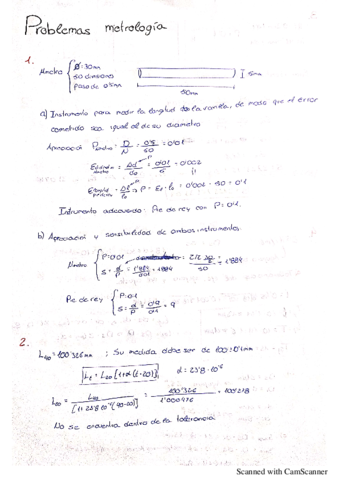 Problemas metrología
1.
Micrómetro { Ø: 30mm
50 divisiones
paso de 0'5mm
5mm
50mm
a) Instrumento para medir la longitud de la varilla, de modo que el error
cometido sea igual al de su diámetro
Apreciación P = D/N = 0'5/50 = 0'01
= Δd/do = 0'01/5 = 0'002
P = Er · lo = 0'002 · 50 = 0'1
Instrumento adecuado: Pie de rey con P=0'1.
b) Apreciación y sensibilidad de ambos instrumentos.
Micrómetro { P=0.01
S = d/P = 1'884/0'01 = 188'4
50 = 1'884
Pie de rey: { P:0.1
S = d/P = 0'9/0'1 = 9
2.
L90 = 100'326mm ; Su medida debe ser de 100±0'1mm
Lt = L20 [1+α(t-20)] α: 23'8·10^-6
L20 = L90/[1+23'8·10^-6(90-20)] = 100'326/1'000476 = 100'218
No se encuentra dentro de la tolerancia
Scanned with CamScanner